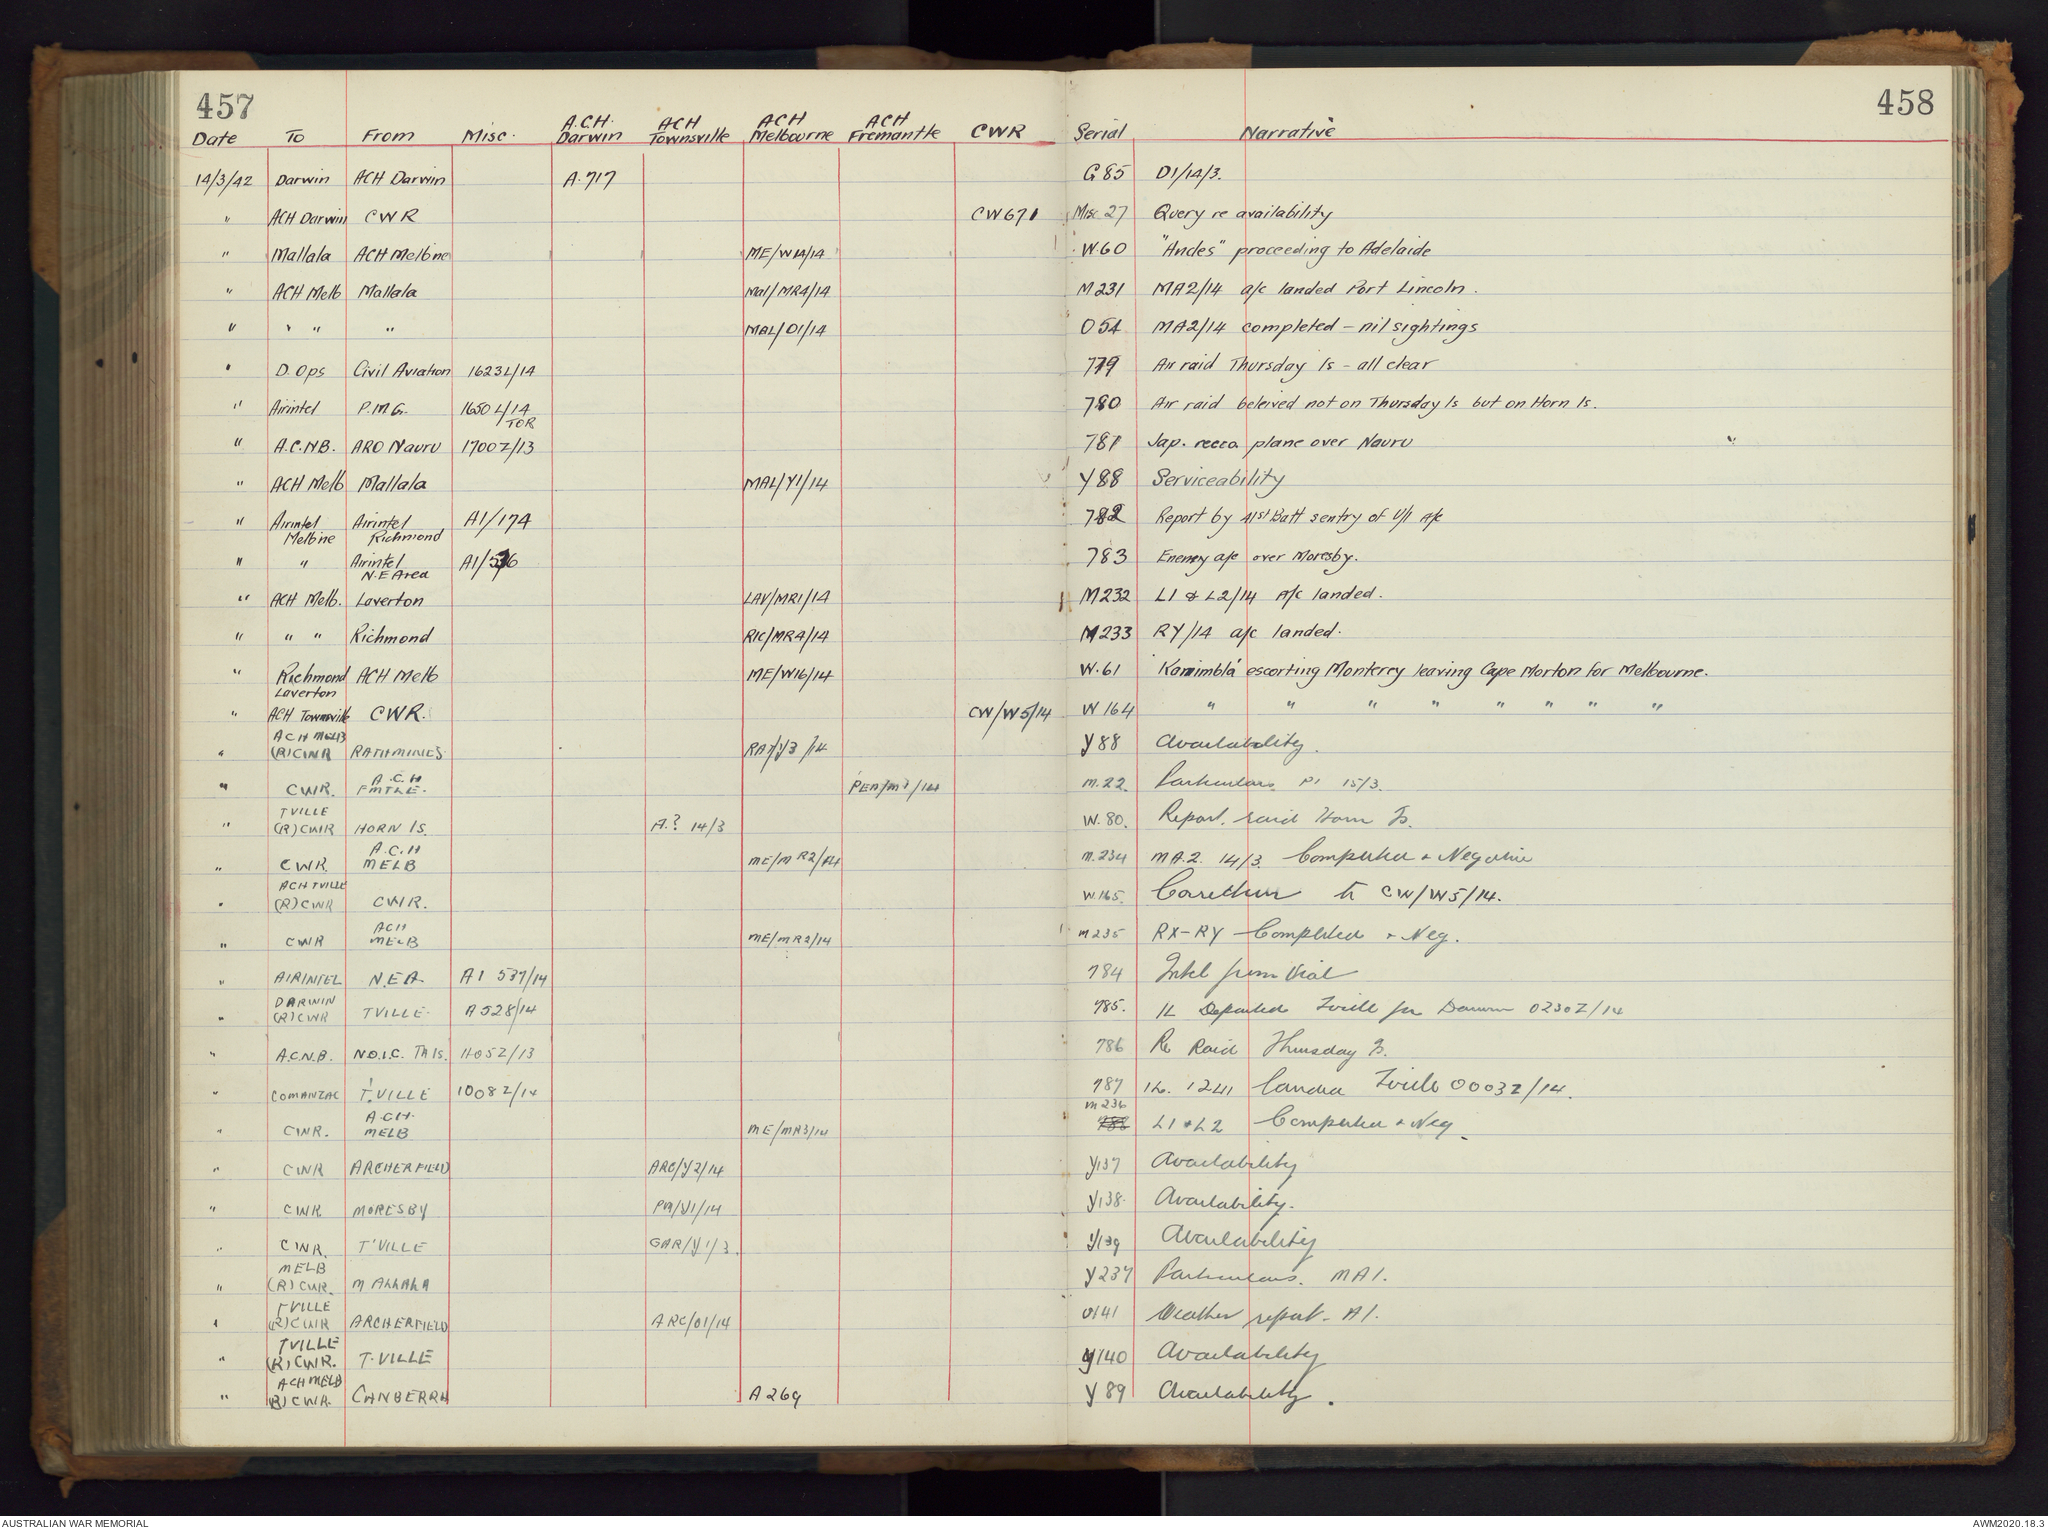 457
458
Date To From Misc. A.C.H. Darwin ACH Townsville ACH Melbourne ACH Fremantle CWR Serial Narrative
14/3/42 Darwin ACH Darwin A.717 G85 D1/14/3.
" ACH Darwin CWR CW671 Misc 27 Query re availability
" Mallala ACH Melbne ME/W14/14 W.60 "Andes" proceeding to Adelaide
" ACH Melb Mallala Mal/MR4/14 M231 MA2/14 a/c landed Port Lincoln.
" " " " MAL/O1/14 O54 MA2/14 completed - nil sightings
" D.Ops Civil Aviation 1623L/14 779 Air raid Thursday Is - all clear
" Airintel P.M.G. 1650L/14 TOR 780 Air raid beleived not on Thursday Is but on Horn Is.
" A.C.N.B. ARO Nauru 1700Z/13 781 Jap. recco. plane over Nauru "
" ACH Melb Mallala MAL/Y1/14 Y88 Serviceability
" Airintel Melbne Airintel Richmond A1/174 782 Report by 41st Batt sentry of U/I A/c
" " Airintel N.E Area A1/536 783 Enemy a/c over Moresby.
" ACH Melb. Laverton LAV/MR1/14 M232 L1 & L2/14 A/c landed.
" " " Richmond RIC/MR4/14 M233 RY/14 a/c landed.
" Richmond Laverton ACH Melb ME/W16/14 W.61 'Kanimbla' escorting Monterey leaving Cape Morton for Melbourne.
" ACH Townsville CWR. CW/W5/14 W164 " " " " " " " "
" ACH MELB (R) CWR RATHMINES RAT/Y3/14 Y88 Availability.
" CWR. A.C.H FMTLE. PER/M1/14 M.22. Particulars P1 15/3.
" TVILLE (R) CWR HORN IS. A.? 14/3 W.80. Report. raid Horn Is.
" CWR. A.C.H MELB ME/MR2/14 M.234 MA.2. 14/3. Completed & Negative
" ACH TVILLE (R) CWR CWR. W.165. Correction to CW/W5/14.
" CWR ACH MELB ME/MR2/14 M235 RX-RY Completed & Neg.
" AIRINTEL N.E.A. A1 537/14 784 Intel from Vial
" DARWIN (R) CWR TVILLE A528/14 785. Departed Tville for Darwin 0230Z/14
" A.C.N.B. N.O.I.C. Th Is. 1105Z/13 786 Re Raid Thursday Is.
" COMANZAC T.VILLE 1008Z/14 787 1241 Tville 0003Z/14.
" CWR. A.C.H. MELB ME/MR3/14 M236 L1 & L2 Completed & Neg.
" CWR ARCHERFIELD ARC/Y2/14 Y137 Availability
" CWR MORESBY PM/Y1/14 Y138. Availability.
" CWR. T'VILLE GAR/Y1/3. Y139 Availability
" MELB (R) CWR. MALLALA Y237 Particulars. MA1.
" TVILLE (R) CWR ARCHERFIELD ARC/O1/14 O141 Weather report - A1.
" TVILLE (R) CWR. T.VILLE Y140 Availability
" ACH MELB (R) CWR. CANBERRA A269 Y89 Availability.
AUSTRALIAN WAR MEMORIAL
AWM2020.18.3